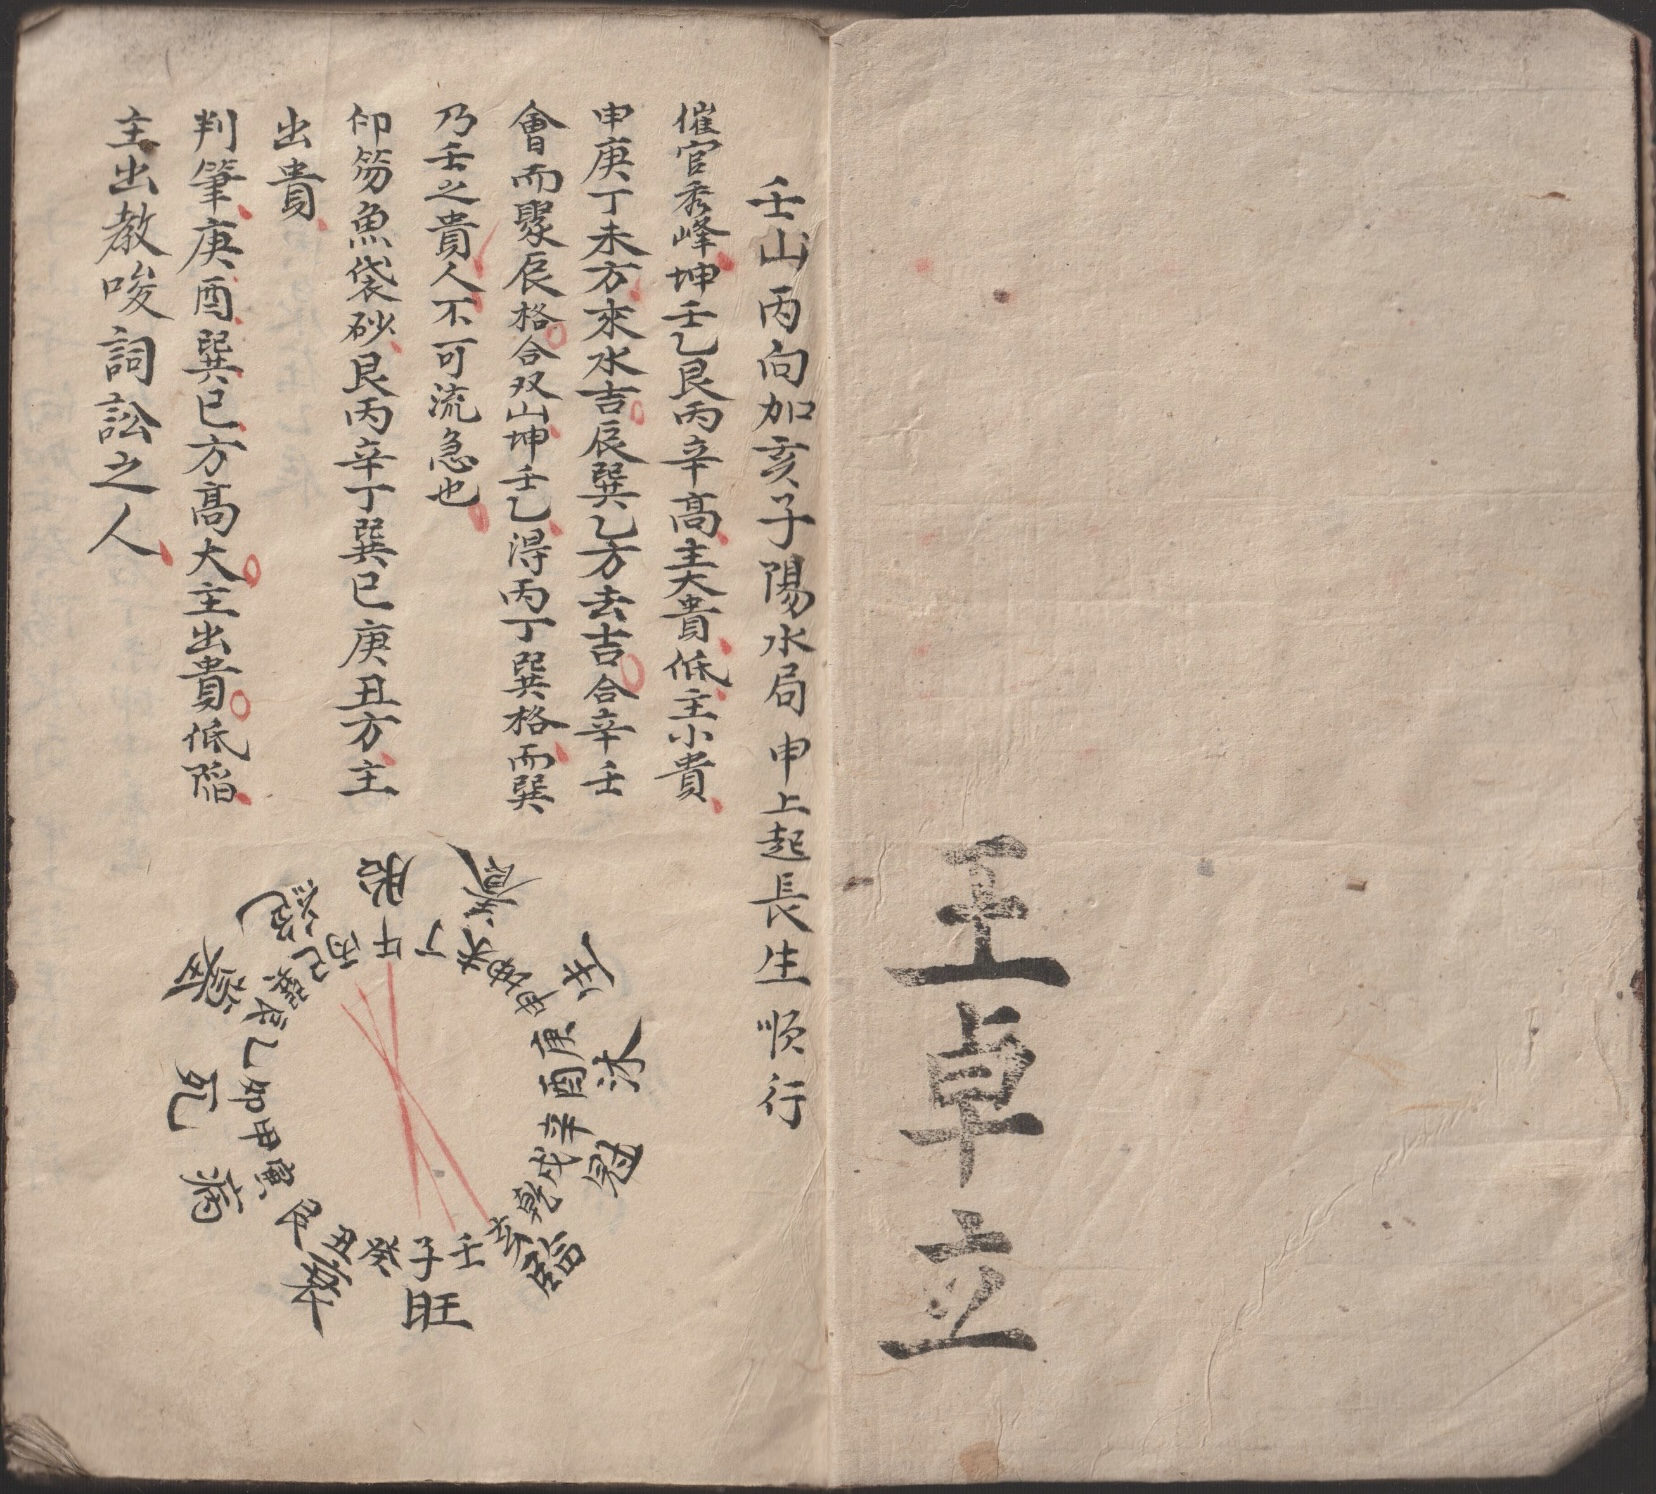 王卓立
壬山丙向加亥子陽水局申上起長生順行
催官秀峰坤壬乙艮丙辛高主大貴低主小貴
申庚丁未方來水吉辰巽乙方去吉合辛壬
會而聚辰格合双山坤壬乙得丙丁巽格而巽
乃壬之貴人不可流急也
印笏魚袋砂艮丙辛丁巽巳庚丑方主
出貴
判筆庚酉巽巳方高大主出貴低陷
主出教唆詞訟之人
胎 養 生 沐 冠 臨 旺 衰 病 死 絶
午丁未坤申庚酉辛戌乾亥壬子癸丑艮寅甲卯乙辰巽巳丙